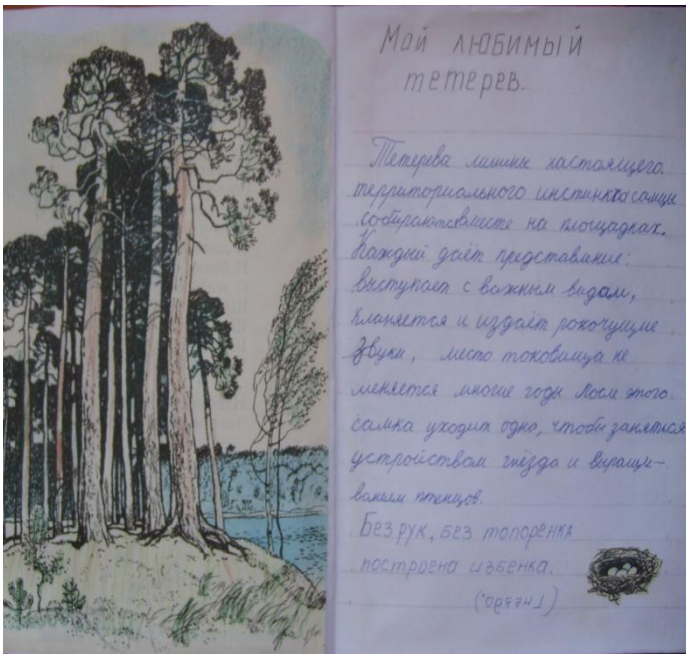 Мой ЛЮБИМЫЙ
тетерев.
Тетерева лишены настоящего
территориального инстинкта самцы
собираются вместе на площадках.
Каждый даёт представление:
выступает с важным видом,
кланяется и издаёт рокочущие
звуки, место токовища не
меняется многие годы После этого
самка уходит одна, чтобы заняться
устройством гнёзда и выращи-
ванием птенцов.
Без рук, без топорёнка
построена избёнка.
(Гнездо.)